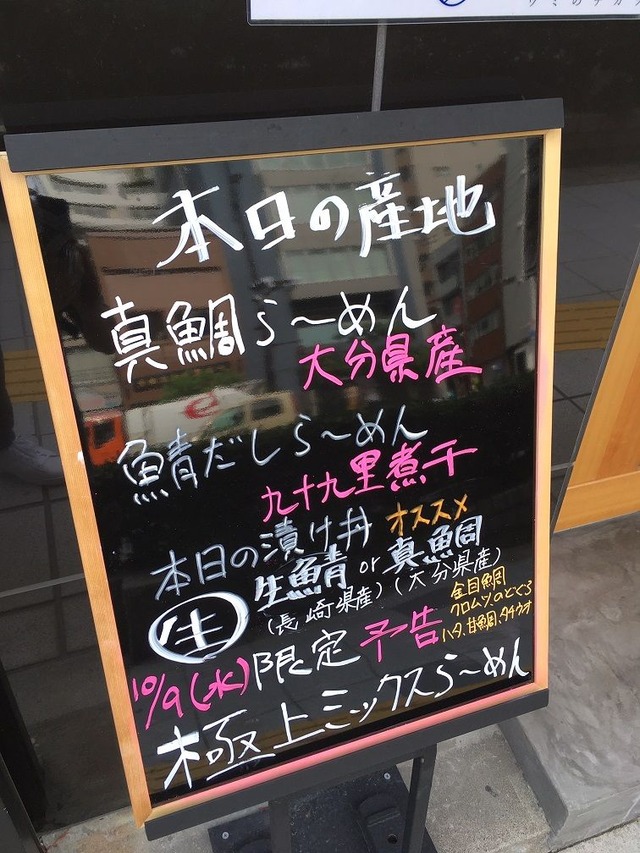 本日の産地
真鯛らーめん
大分県産
鯖だしらーめん
九十九里煮干
本日の漬け丼 オススメ
生 生鯖 or 真鯛
(長崎県産) (大分県産)
10/9(水) 限定 予告
金目鯛
クロムツ のどぐろ
ハタ、甘鯛、タチウオ
極上ミックスらーめん